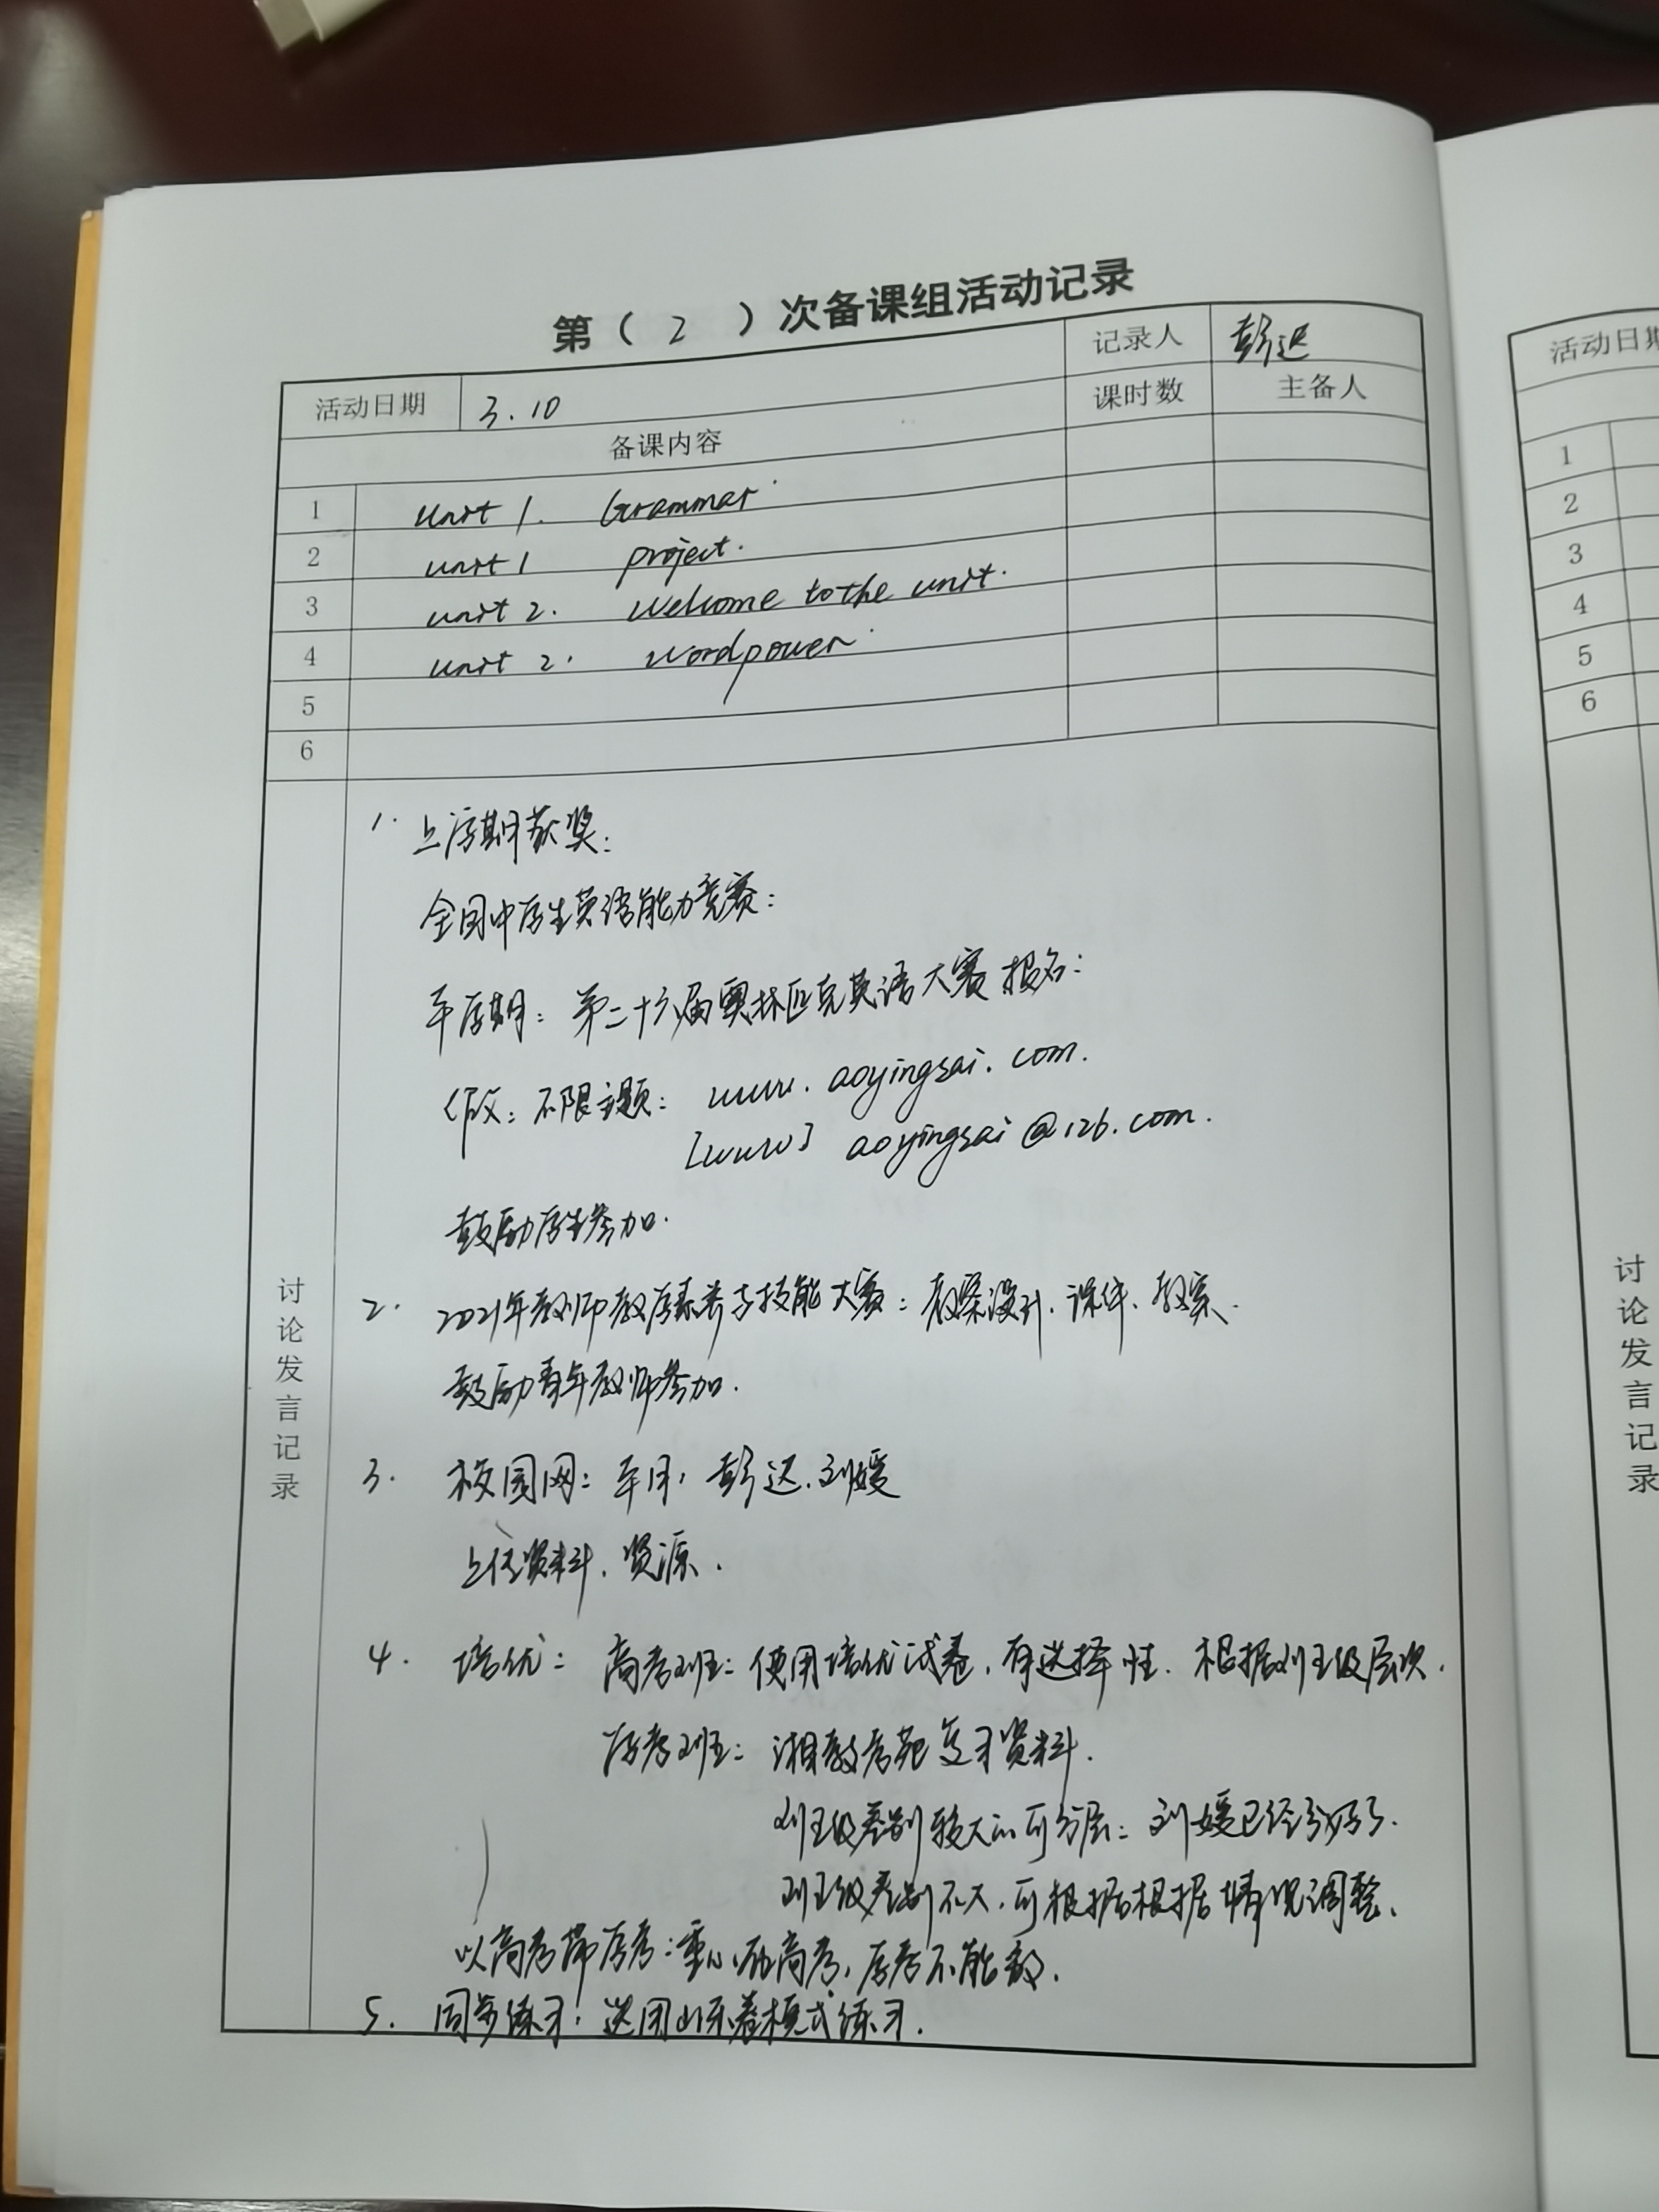 第（ 2 ）次备课组活动记录
活动日期 3.10 记录人 彭迟
备课内容 课时数 主备人
1 unit 1. Grammar.
2 unit 1 project.
3 unit 2. Welcome to the unit.
4 unit 2. Wordpower.
5
6
讨论发言记录
1. 上学期获奖：
全国中学生英语能力竞赛：
本学期：第二十六届奥林匹克英语大赛报名：
作文：不限主题： www.aoyingsai.com.
[www] aoyingsai@126.com.
鼓励学生参加.
2. 2021年教师教学素养与技能大赛：教案设计、课件、教案.
鼓励青年教师参加.
3. 校园网：本月，彭迟、刘媛
上传资料、资源.
4. 培优：高考班：使用培优试卷，有选择性. 根据班级层次.
学考班：湘教考苑复习资料.
班级差别较大的可分层：刘媛已经分好了.
班级差别不大，可根据根据情况调整.
以高考带学考：重心在高考，学考不能教.
5. 同步练习：选用山东卷模式练习.
活动日期
1
2
3
4
5
6
讨论发言记录